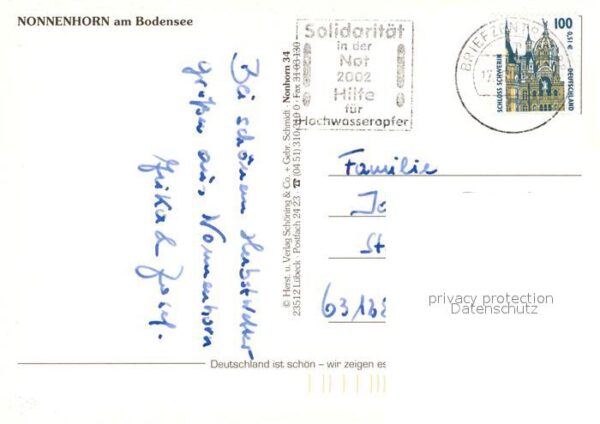 NONNENHORN am Bodensee
Solidarität
in der
Not
2002
Hilfe
für
Hochwasseropfer
BRIEFZENTRUM
17
100
0,51 €
SCHLOSS SCHWERIN
DEUTSCHLAND
Bei schönem Herbstwetter
grüßen aus Nonnenhorn
© Herst. u. Verlag Schöning & Co. + Gebr. Schmidt · Nonhorn 34
23512 Lübeck · Postfach 24 23 · ☎ (04 51) 310 310 0 · Fax 31 03 130
Familie
63138
privacy protection
Datenschutz
Deutschland ist schön – wir zeigen es